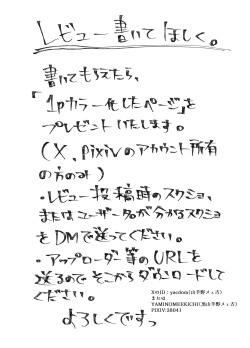 レビュー書いてほしく。
書いてもらえたら、
「1pカラー化したページ」を
プレゼントいたします。
(X、pixivのアカウント所有
の方のみ)
・レビュー投稿時のスクショ、
またはユーザー名が分かるスクショ
をDMで送ってください。
・アップローダー等のURLを
送るので そこからダウンロードして
ください。
よろしくですっ
XのID:yacdom(山羊野メェ吉)
または
YAMINOMEEKICHI(黒山羊野メェ吉)
PIXIV:38041